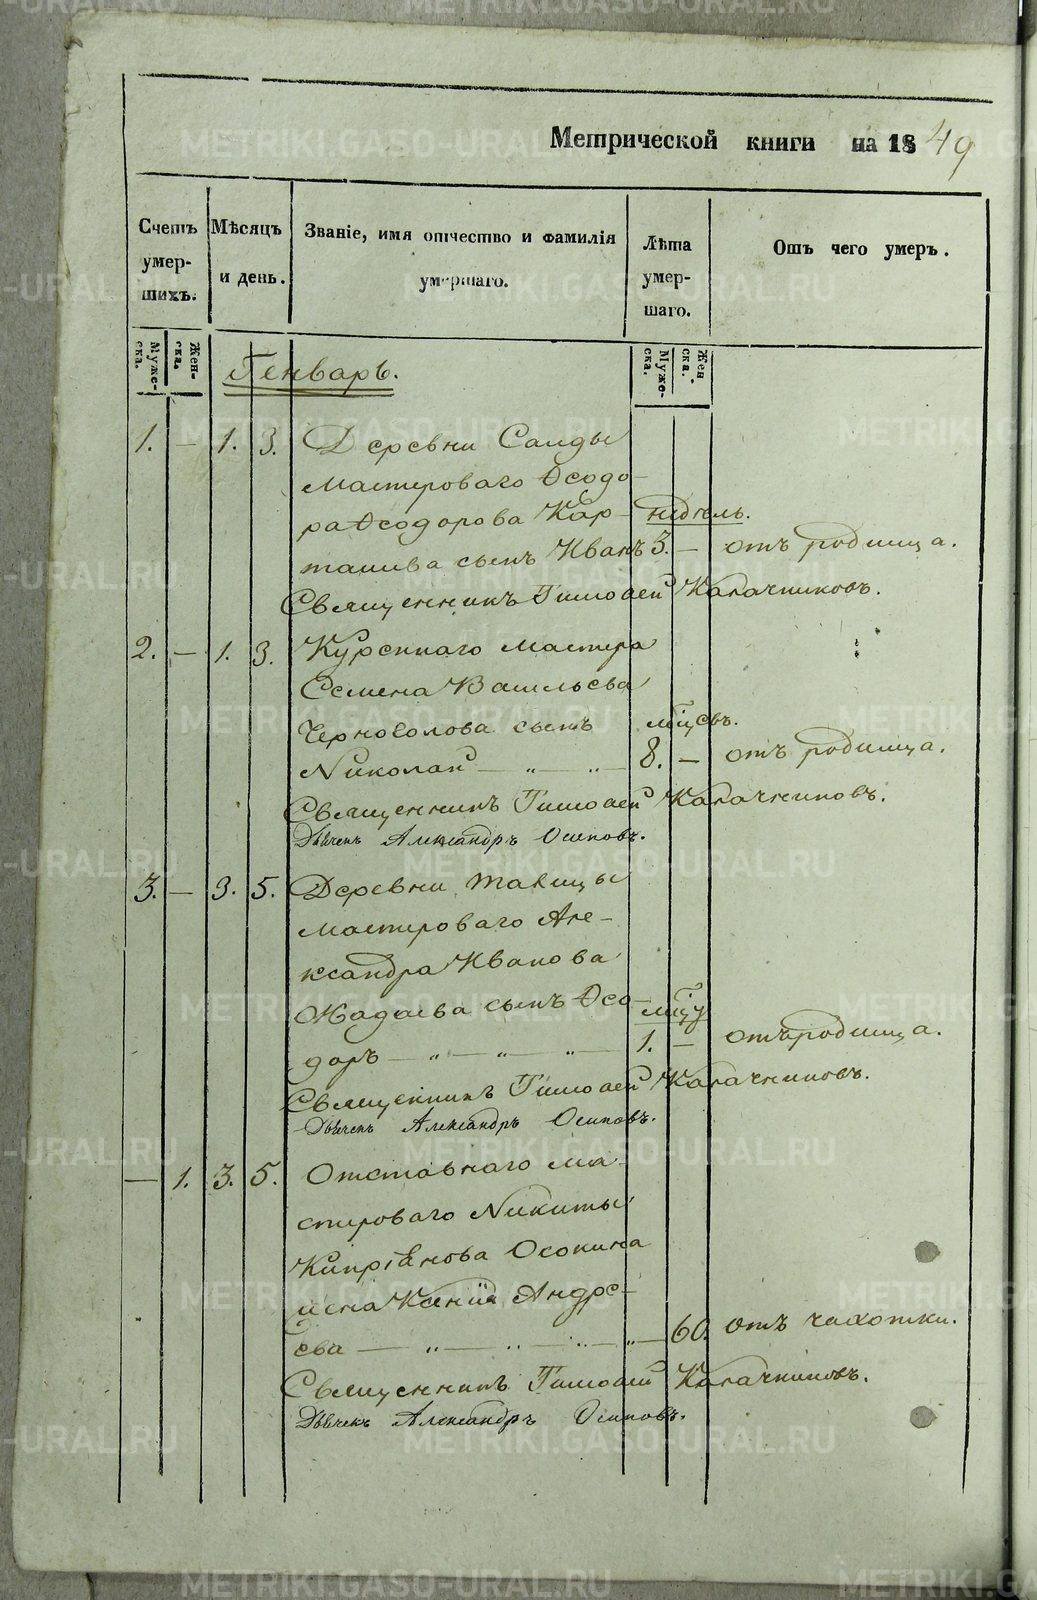 Метрической книги на 1849
Счетъ умер- шихъ.
Мѣсяцъ и день.
Званіе, имя отчество и фамилія умершаго.
Лѣта умер- шаго.
Отъ чего умеръ.
Муже- ска.
Жен- ска.
Генварь.
Муже- ска.
Жен ска.
1. — 1. 3. Деревни Саиды
мастероваго Ѳеодо-
ра Ѳеодорова Кар- недѣль.
ташева сынъ Иванъ 3. — отъ родимца.
Священникъ Тимоѳей Калачниковъ.
2. — 1. 3. Куреннаго мастера
Семена Васильева
Черноголова сынъ мѣцевъ.
Николай — „ — „ — 8. — отъ родимца.
Священникъ Тимоѳей Калачниковъ.
Дьячекъ Александръ Осиповъ.
3. — 3. 5. Деревни Таvицы
мастероваго Але-
ксандра Иванова
сынъ Ѳео- мѣцъ
доръ — „ — „ — „ — 1. — отъ родимца.
Священникъ Тимоѳей Калачниковъ.
Дьячекъ Александръ Осиповъ.
— 1. 3. 5. Отставнаго ма-
стероваго Никиты
Кипріянова Осокина
жена Ксенія Андре-
ева — „ — „ — „ — „ — 60. отъ чахотки.
Священникъ Тимоѳей Калачниковъ.
Дьячекъ Александръ Осиповъ.
METRIKI.GASO-URAL.RU